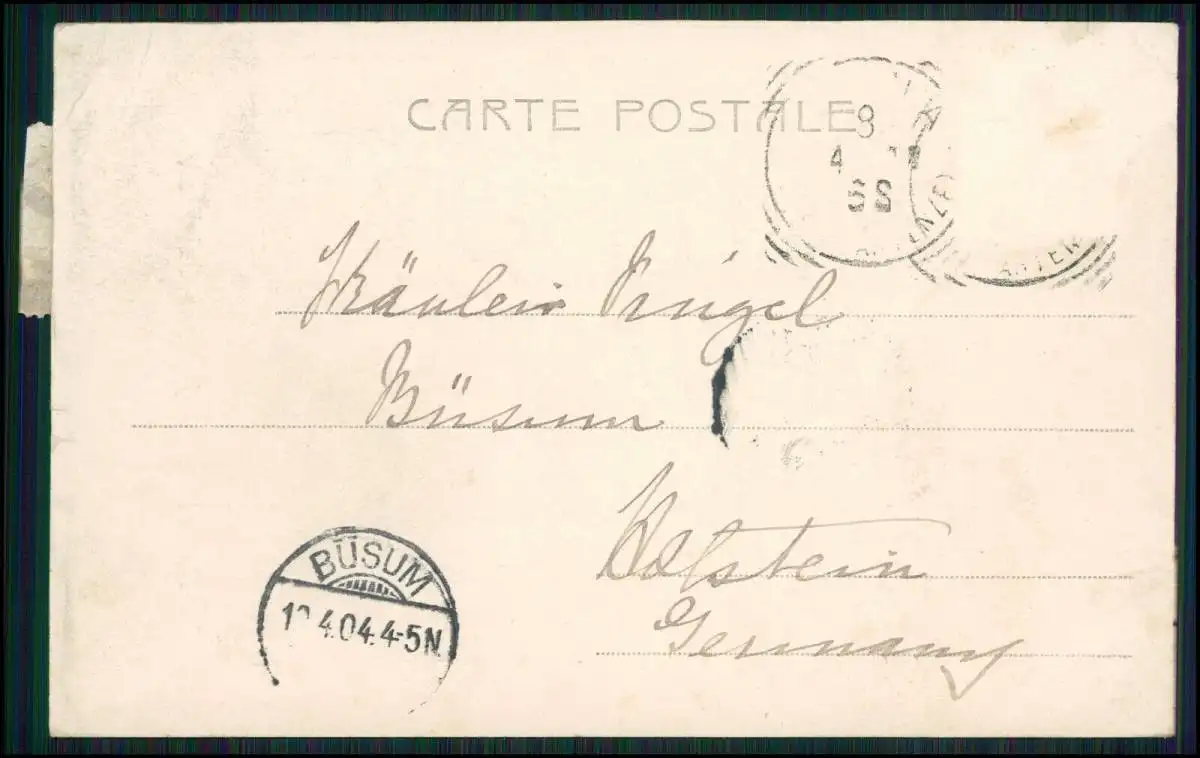 CARTE POSTALE
8
4
Fräulein
Büsum
Holstein
Germany
BÜSUM
4.04.4-5N.